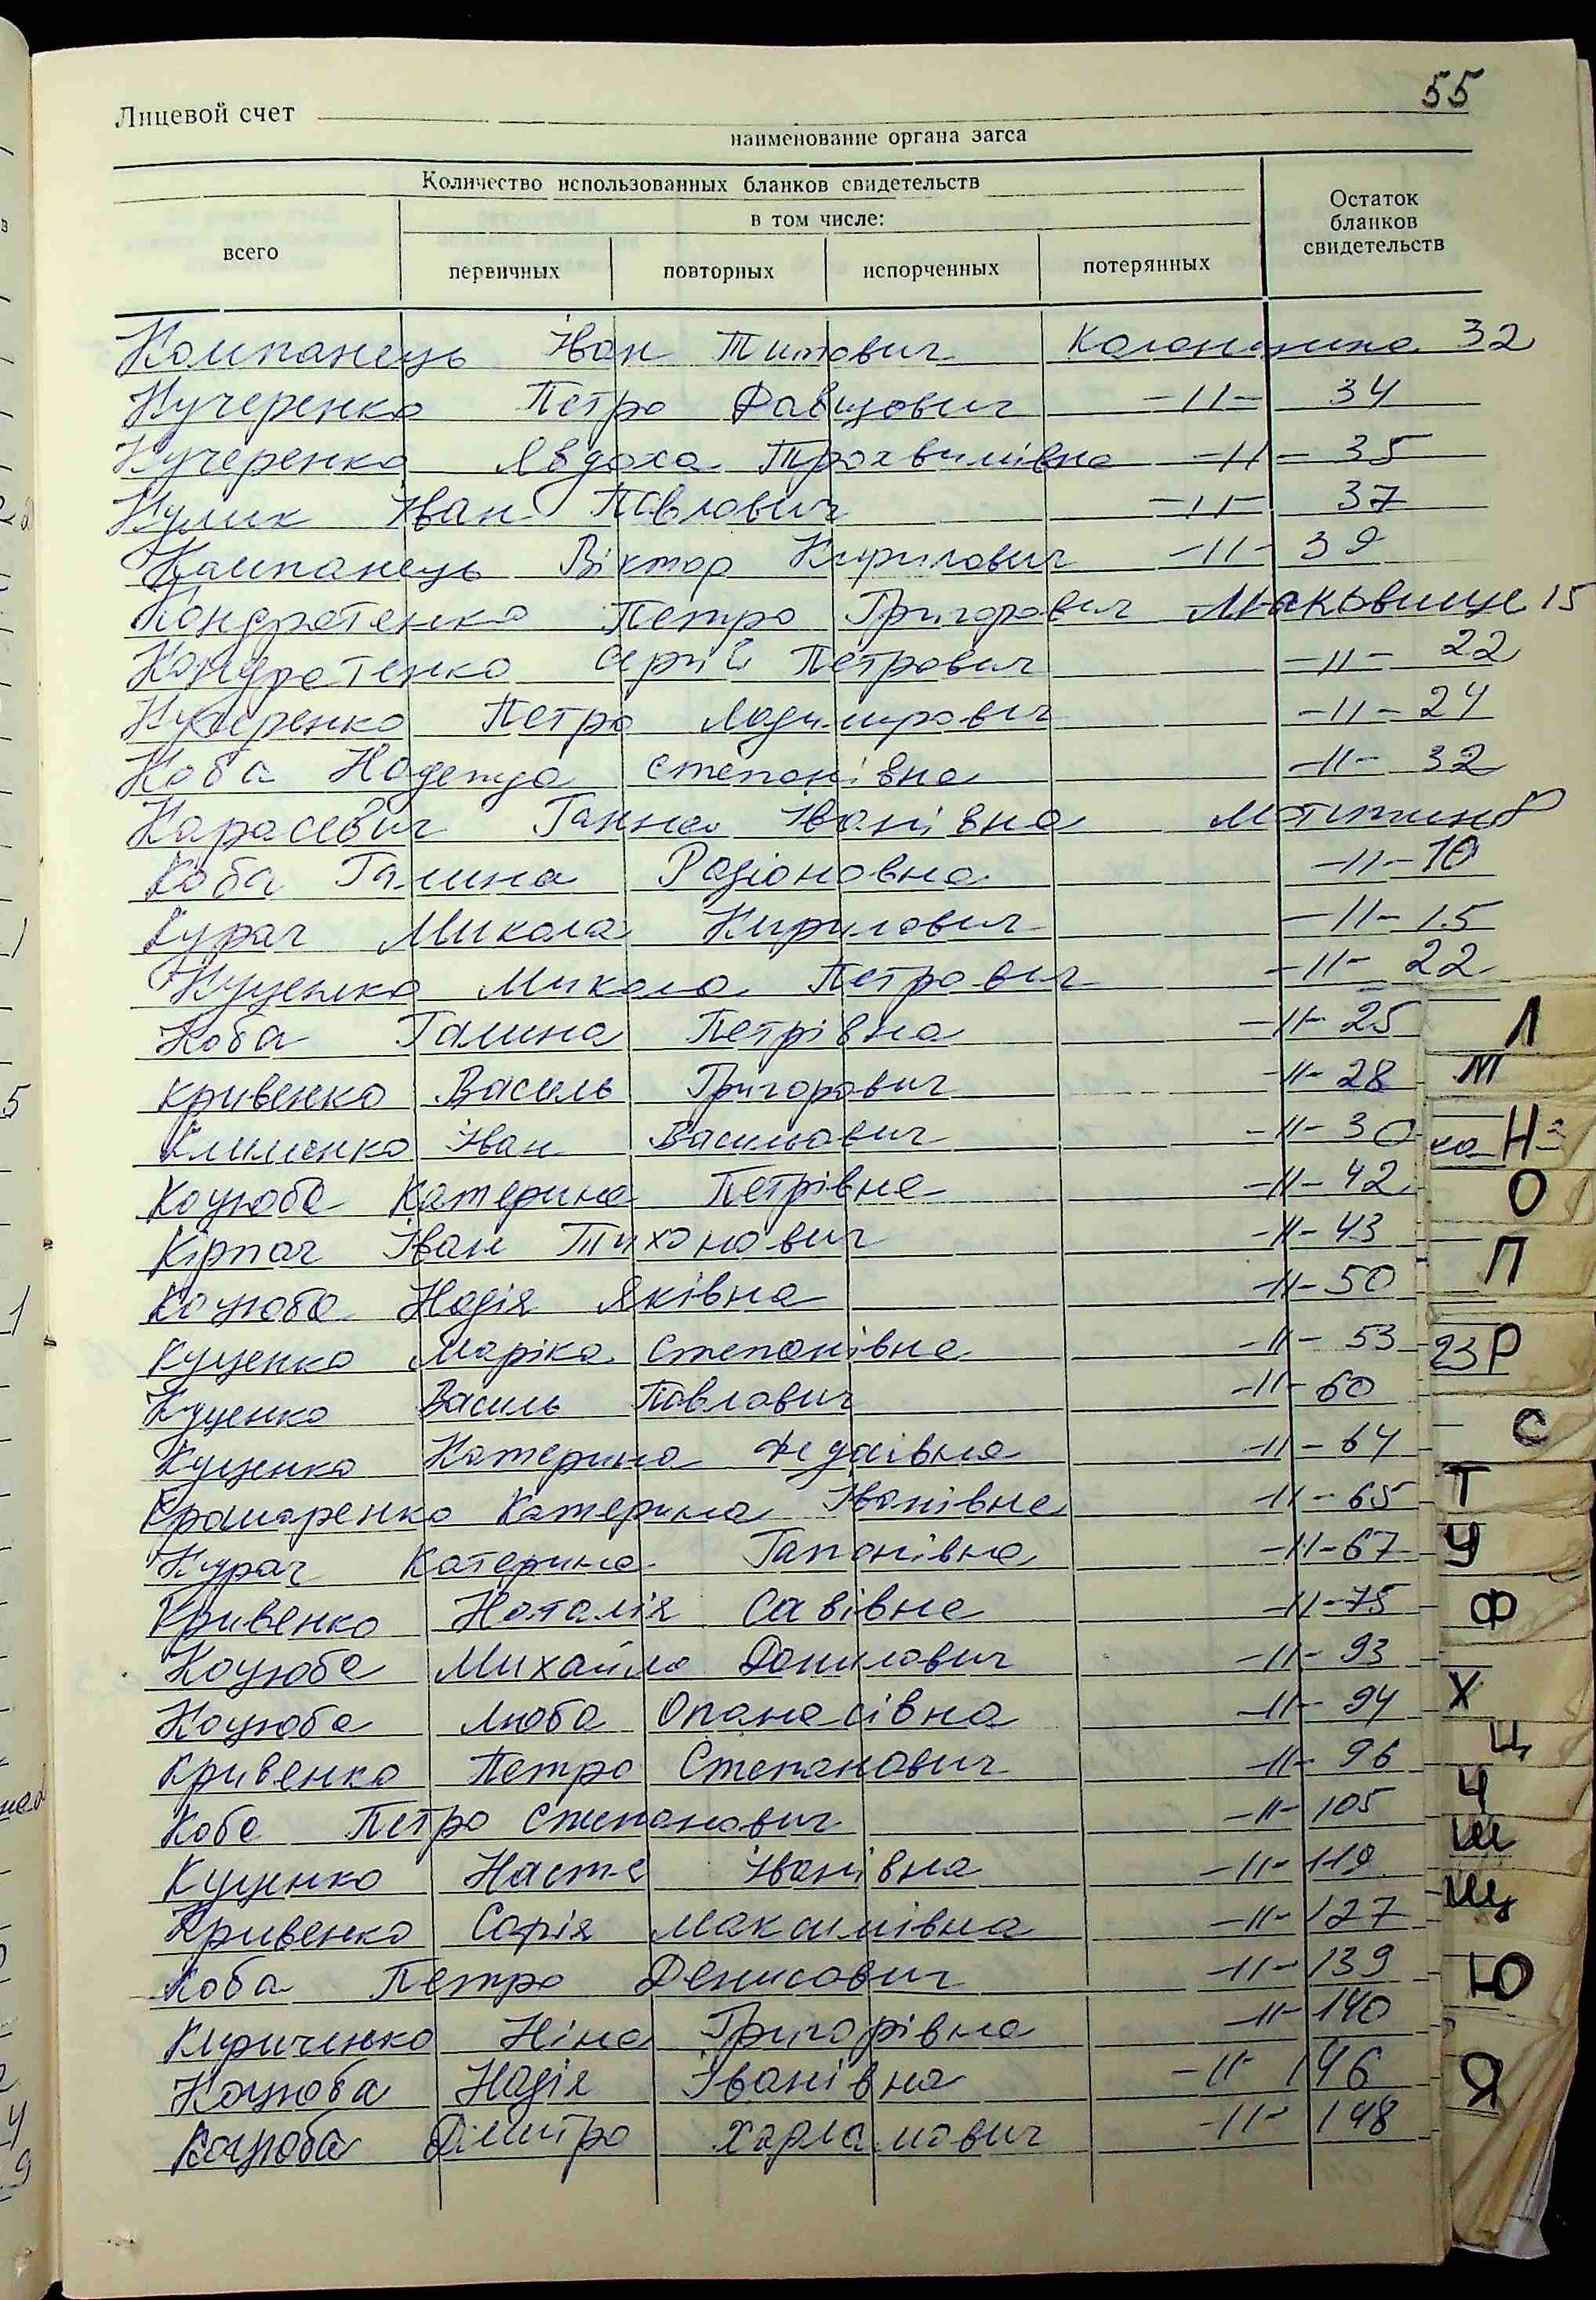 55
Лицевой счет
наименование органа загса
Количество использованных бланков свидетельств
Остаток бланков свидетельств
в том числе:
всего
первичных повторных испорченных потерянных
Компанець Іван Титович Колонщина 32
Кучеренко Петро Давидович -11- 34
Кучеренко Явдоха Трохвимівна -11- 35
Кулик Іван Павлович -11- 37
Компанець Віктор Кирилович -11- 39
Кондратенко Петро Григорович Маковище 15
Кондротенко Сергій Петрович -11- 22
Кучеренко Петро Лодимирович -11- 24
Коба Надежда Степанівна -11- 32
Карасевич Ганна Іванівна Мотижин 8
Коба Галина Родіоновна -11- 10
Курач Микола Кирилович -11- 15
Куценко Микола Петрович -11- 22
Коба Галина Петрівна -11- 25
Кривенко Василь Григорович -11- 28
Клименко Іван Васильович -11- 30
Коцюба Катерина Петрівна -11- 42
Кірпач Іван Тихонович -11- 43
Коцюба Надія Яківна -11- 50
Куценко Маріка Степанівна -11- 53
Куценко Василь Павлович -11- 60
Куценко Катерина -11- 64
Крамаренко Катерина Іванівна -11- 65
Курач Катерина Гапонівна -11- 67
Кривенко Наталія Савівна -11- 75
Коцюба Михайло Данилович -11- 93
Коцюба Люба Опанасівна -11- 94
Кривенко Петро Степанович -11- 96
Коба Петро Степанович -11- 105
Куценко Настя Іванівна -11- 119
Кривенко Софія Максимівна -11- 127
Коба Петро Денисович -11- 139
Кириченко Ніна Григорівна -11- 140
Коцюба Надія Іванівна -11- 146
Коцюба Дмитро Харламович -11- 148
Л
М
Н
О
П
23 Р
С
Т
У
Ф
Х
Ц
Ч
Ш
Щ
Ю
Я